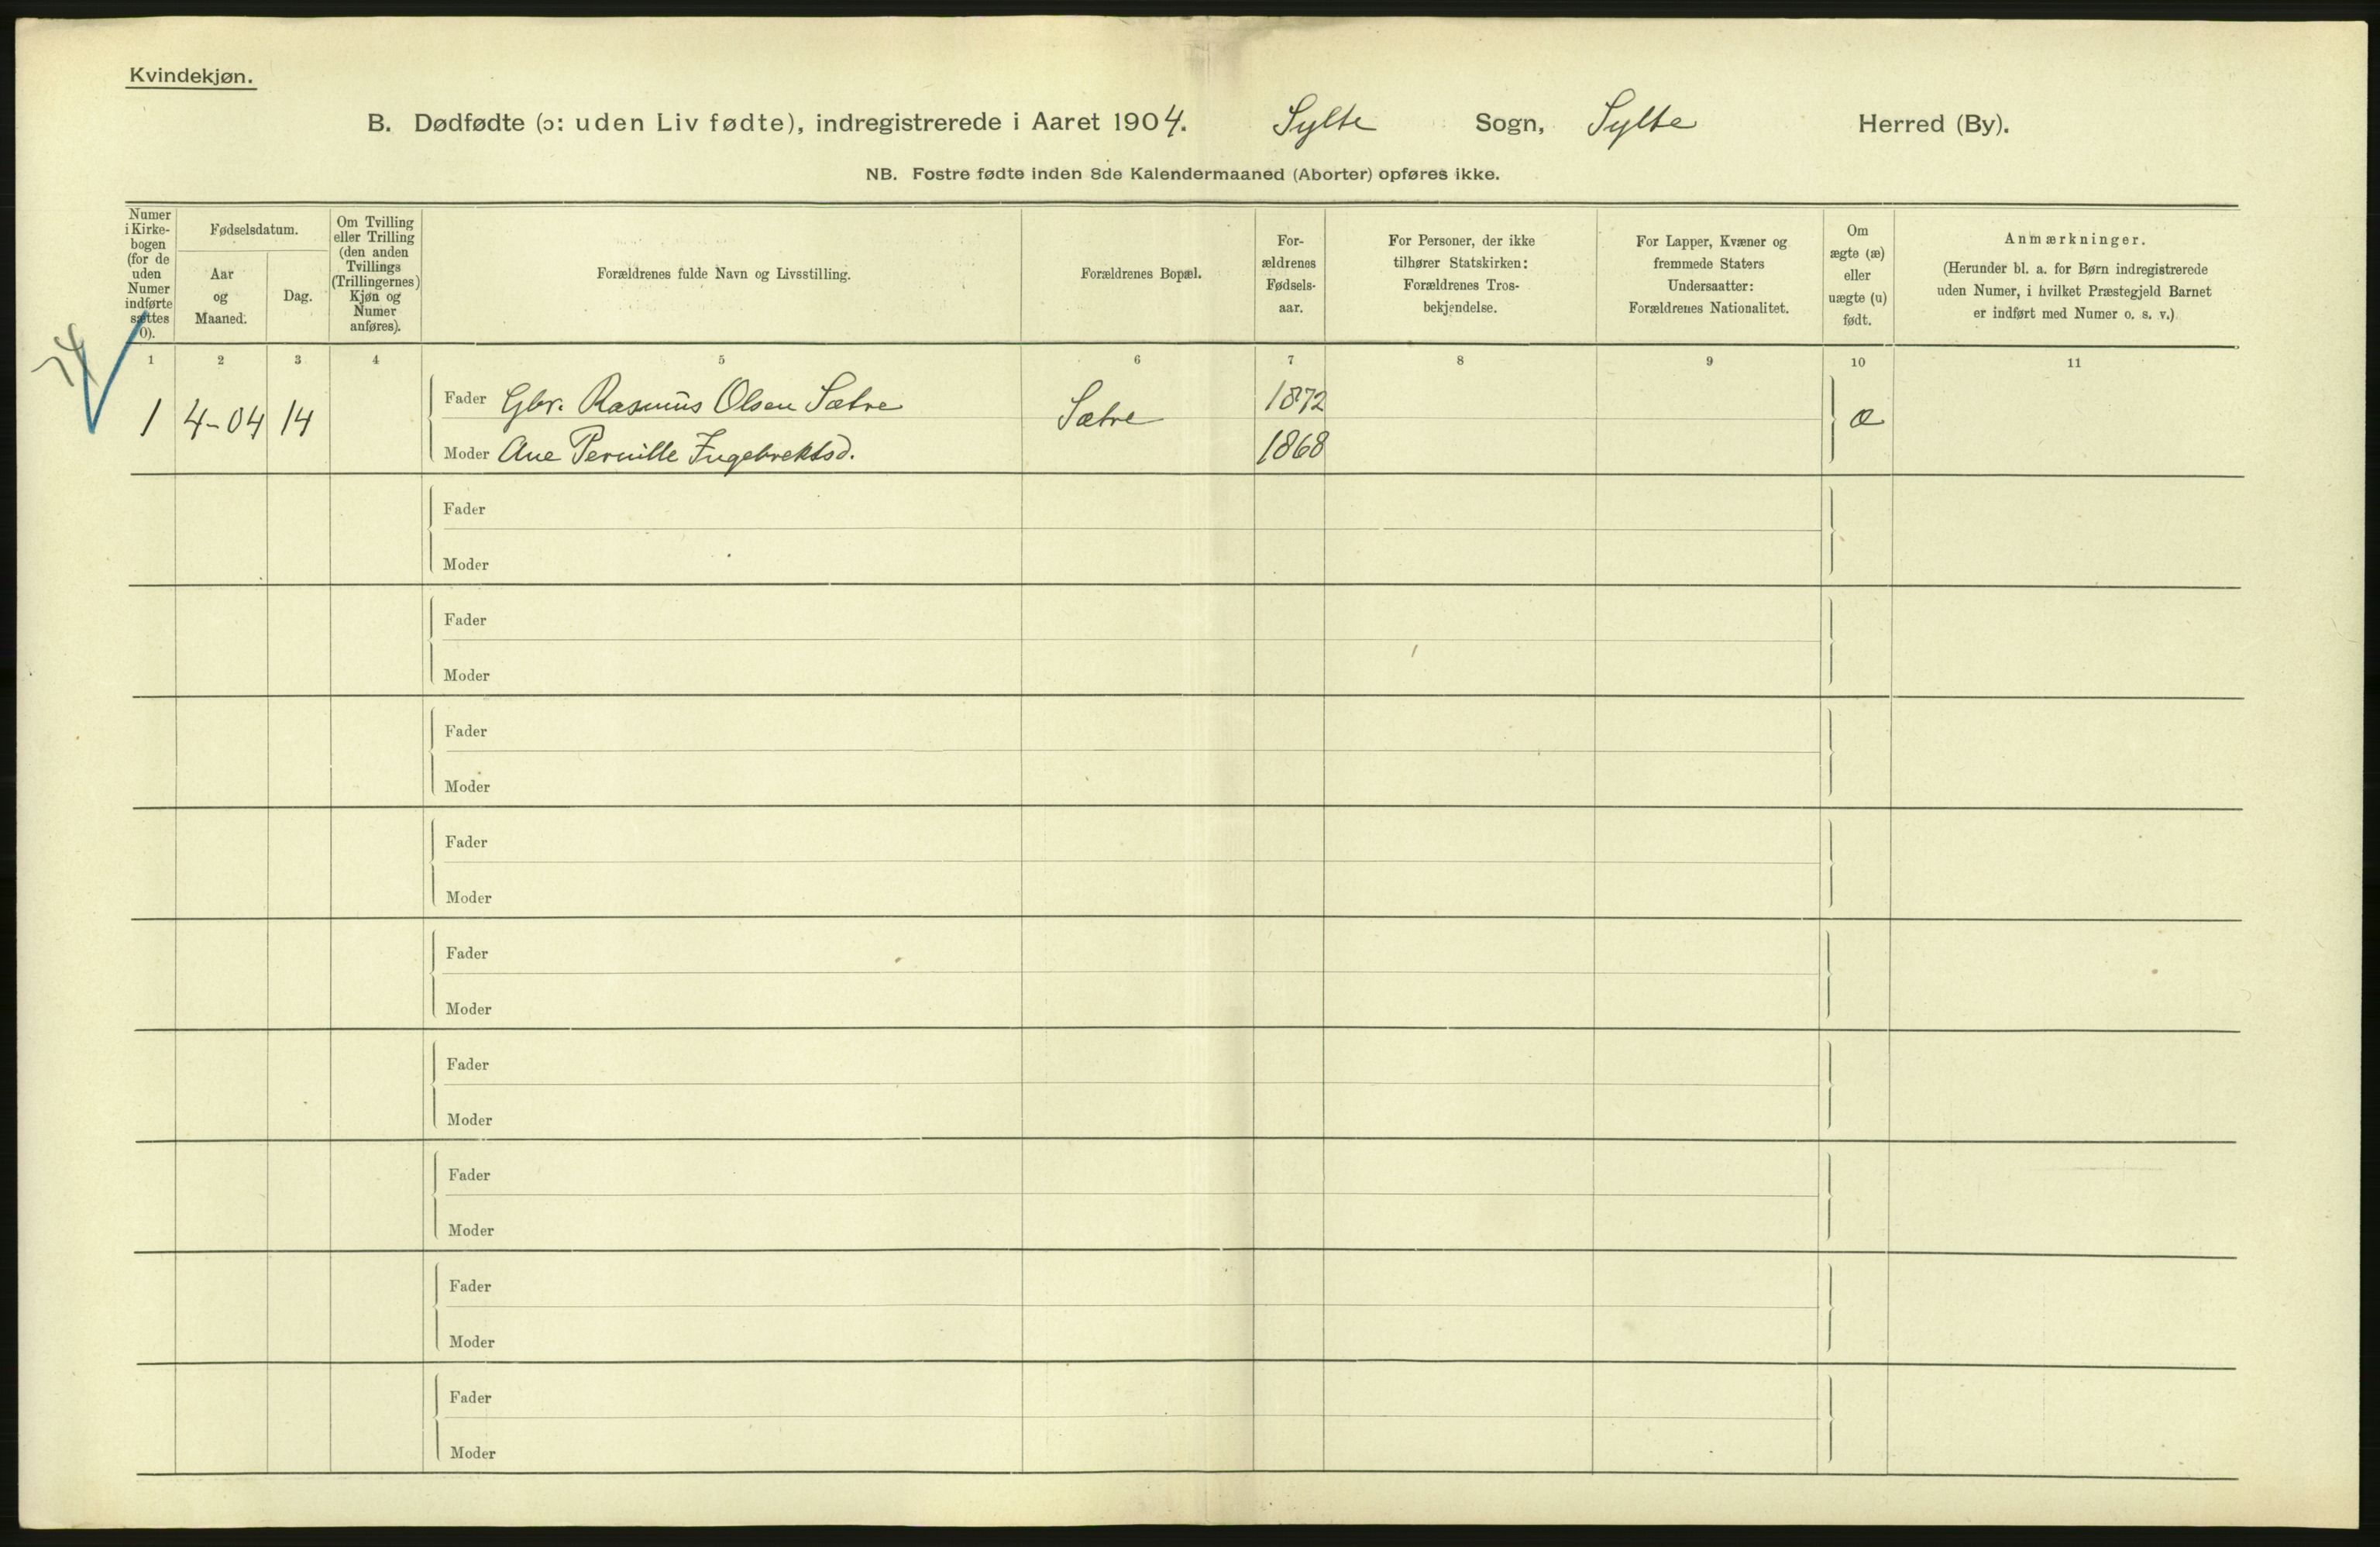 Kvindekjøn.
B. Dødfødte (ɔ: uden Liv fødte), indregistrerede i Aaret 1904. Sylte Sogn, Sylte Herred (By).
NB. Fostre fødte inden 8de Kalendermaaned (Aborter) opføres ikke.
Numer i Kirke-bogen (for de uden Numer indførte sættes 0).
Fødselsdatum.
Aar og Maaned.
Dag.
Om Tvilling eller Trilling (den anden Tvillings (Trillingernes) Kjøn og Numer anføres).
Forældrenes fulde Navn og Livsstilling.
Forældrenes Bopæl.
For-ældrenes Fødsels-aar.
For Personer, der ikke tilhører Statskirken: Forældrenes Tros-bekjendelse.
For Lapper, Kvæner og fremmede Staters Undersaatter: Forældrenes Nationalitet.
Om ægte (æ) eller uægte (u) født.
Anmærkninger.
(Herunder bl. a. for Børn indregistrerede uden Numer, i hvilket Præstegjeld Barnet er indført med Numer o. s. v.)
1 2 3 4 5 6 7 8 9 10 11
Fader Gbr. Rasmus Olsen Sætre 1872
1 4-04 14 Sætre æ
Moder Ane Pernille Ingebrektsd. 1868
Fader
Moder
Fader
Moder
Fader
Moder
Fader
Moder
Fader
Moder
Fader
Moder
Fader
Moder
Fader
Moder
Fader
Moder